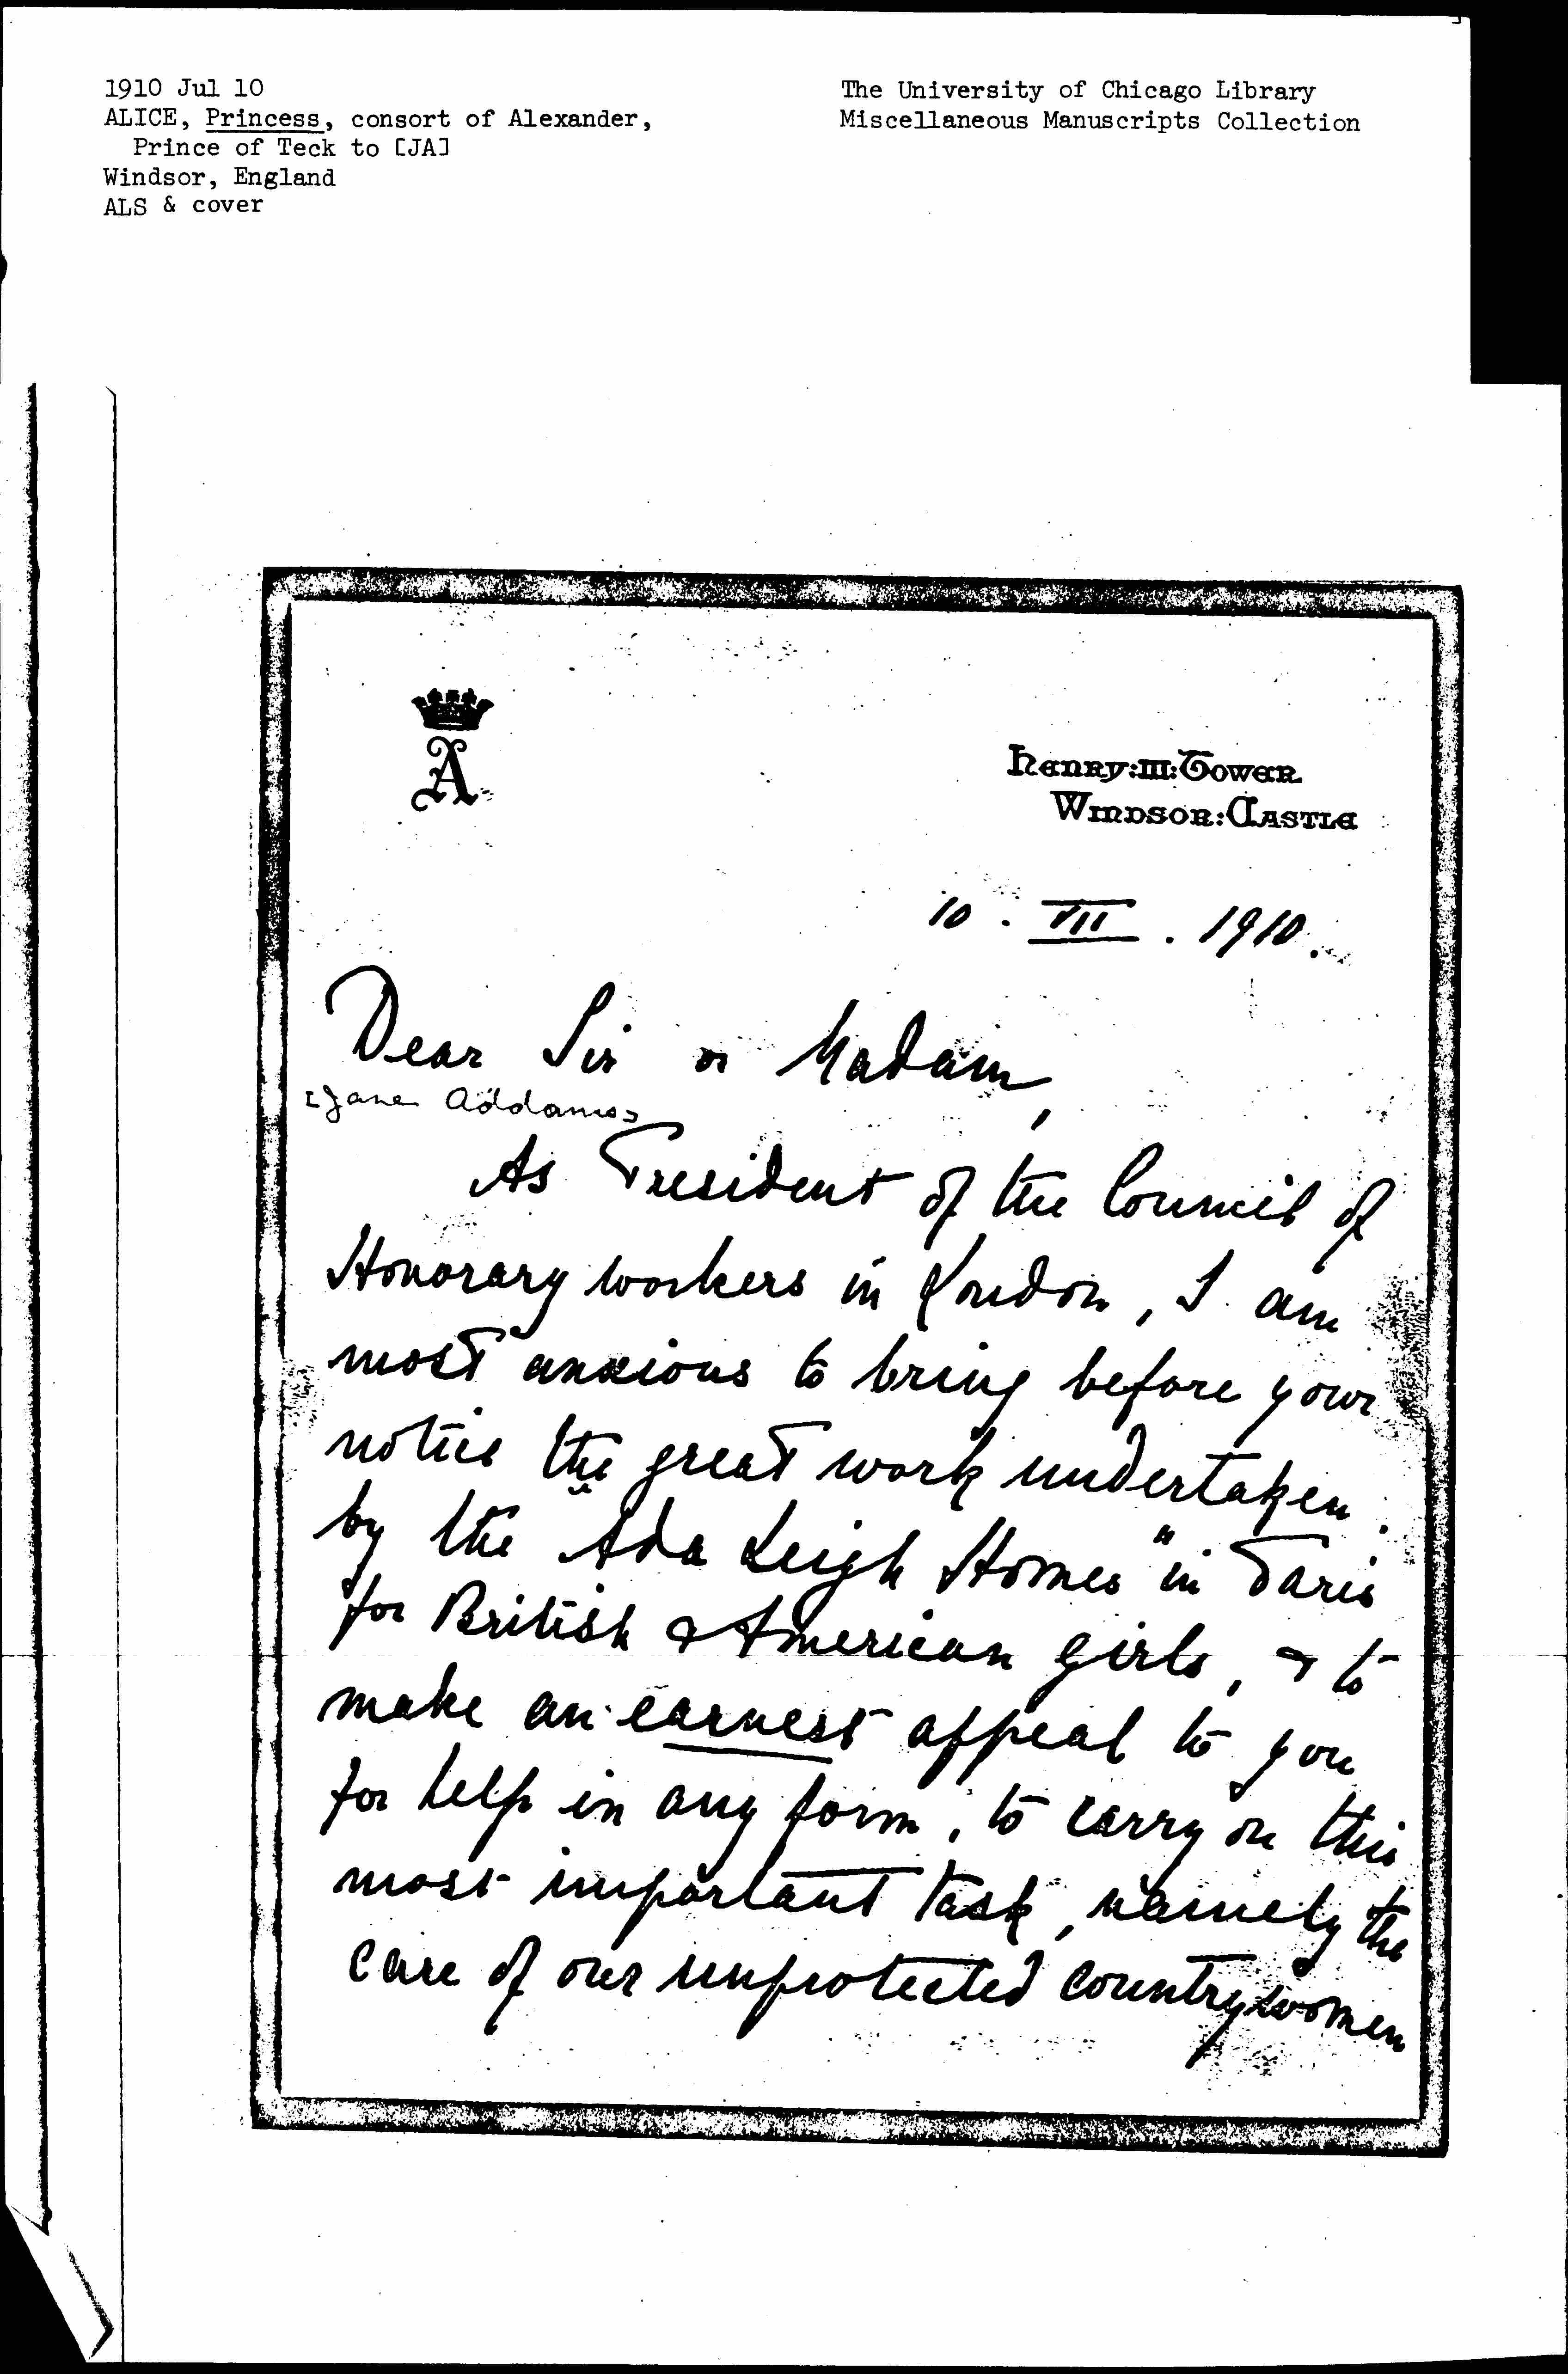 1910 Jul 10
ALICE, Princess, consort of Alexander,
Prince of Teck to [JA]
Windsor, England
ALS & cover
The University of Chicago Library
Miscellaneous Manuscripts Collection
A
Henry:III:Tower
Windsor:Castle
10 . VII . 1910.
Dear Sir or Madam,
[Jane Addams]
As President of the Council of
Honorary workers in London, I am
most anxious to bring before your
notice the great work undertaken
by the "Ada Leigh Homes" in Paris
for British & American girls, & to
make an earnest appeal to you
for help in any form, to carry on this
most important task, namely the
care of our unprotected countrywomen